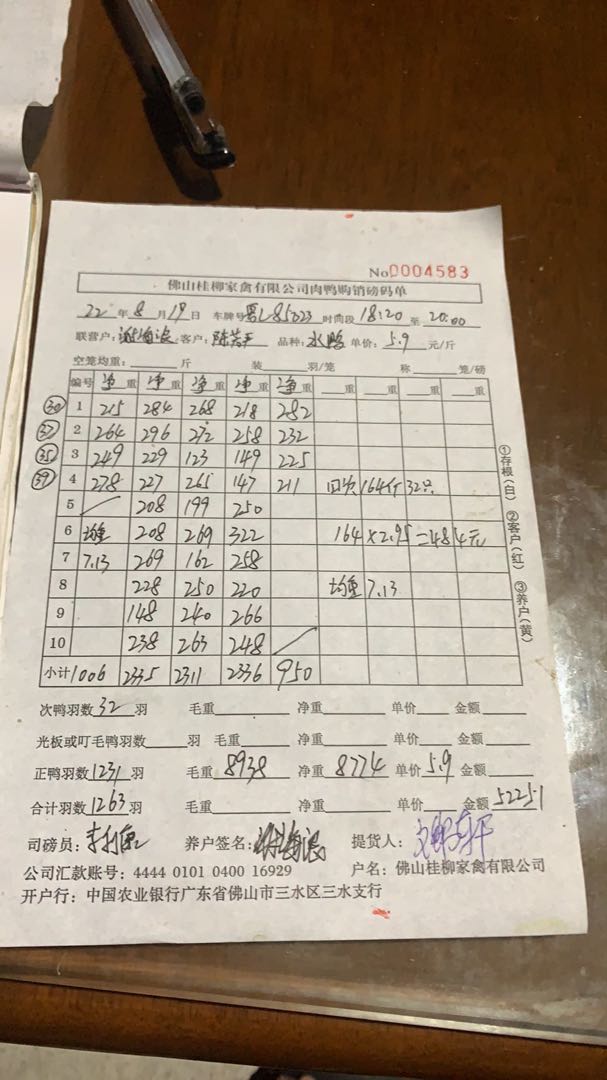 No 0004583
佛山桂柳家禽有限公司肉鸭购销磅码单
22年8月19日 车牌号粤L85023 时间段18:20至20:00
联营户: 客户:陈 品种:水鸭 单价:5.9元/斤
空笼均重: 斤 装 羽/笼 称 笼/磅
编号 净重 净重 净重 净重 净重 重 重 重 重
30 1 215 284 268 218 282
37 2 264 296 272 258 232
35 3 249 229 123 149 225
39 4 278 227 265 147 211 回次 164斤 32只
5 208 199 250
6 均重 208 269 322 164×2.95=484元
7 7.13 269 162 258
8 228 250 220 均重 7.13
9 148 240 266
10 238 263 248
小计 1006 2335 2311 2336 950
①存根(白) ②客户(红) ③养户(黄)
次鸭羽数32羽 毛重 净重 单价 金额
光板或叮毛鸭羽数 羽 毛重 净重 单价 金额
正鸭羽数1231羽 毛重8938 净重8774 单价5.9 金额
合计羽数1263羽 毛重 净重 单价 金额52251
司磅员: 养户签名: 提货人:
公司汇款账号: 4444 0101 0400 16929 户名: 佛山桂柳家禽有限公司
开户行: 中国农业银行广东省佛山市三水区三水支行